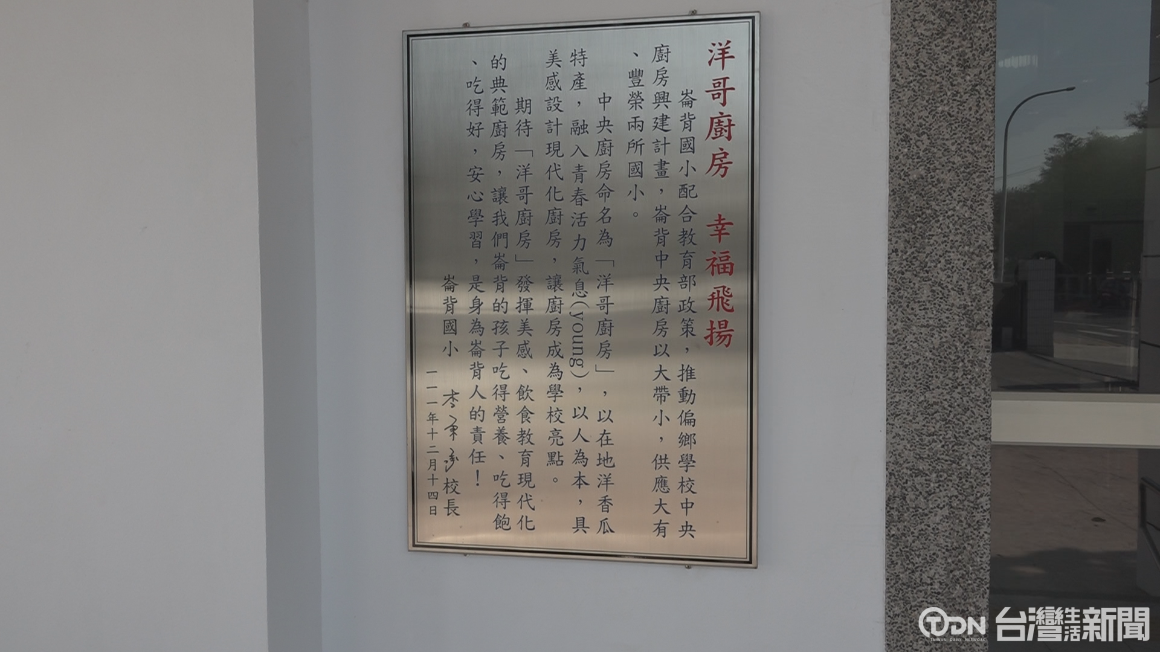 洋哥廚房 幸福飛揚
崙背國小配合教育部政策，推動偏鄉學校中央
廚房興建計畫，崙背中央廚房以大帶小，供應大有
、豐榮兩所國小。
中央廚房命名為「洋哥廚房」，以在地洋香瓜
特產，融入青春活力氣息(young)，以人為本，具
美感設計現代化廚房，讓廚房成為學校亮點。
期待「洋哥廚房」發揮美感、飲食教育現代化
的典範廚房，讓我們崙背的孩子吃得營養、吃得飽
、吃得好，安心學習，是身為崙背人的責任！
崙背國小 校長
一一一年十二月十四日
TDN 台灣生活新聞